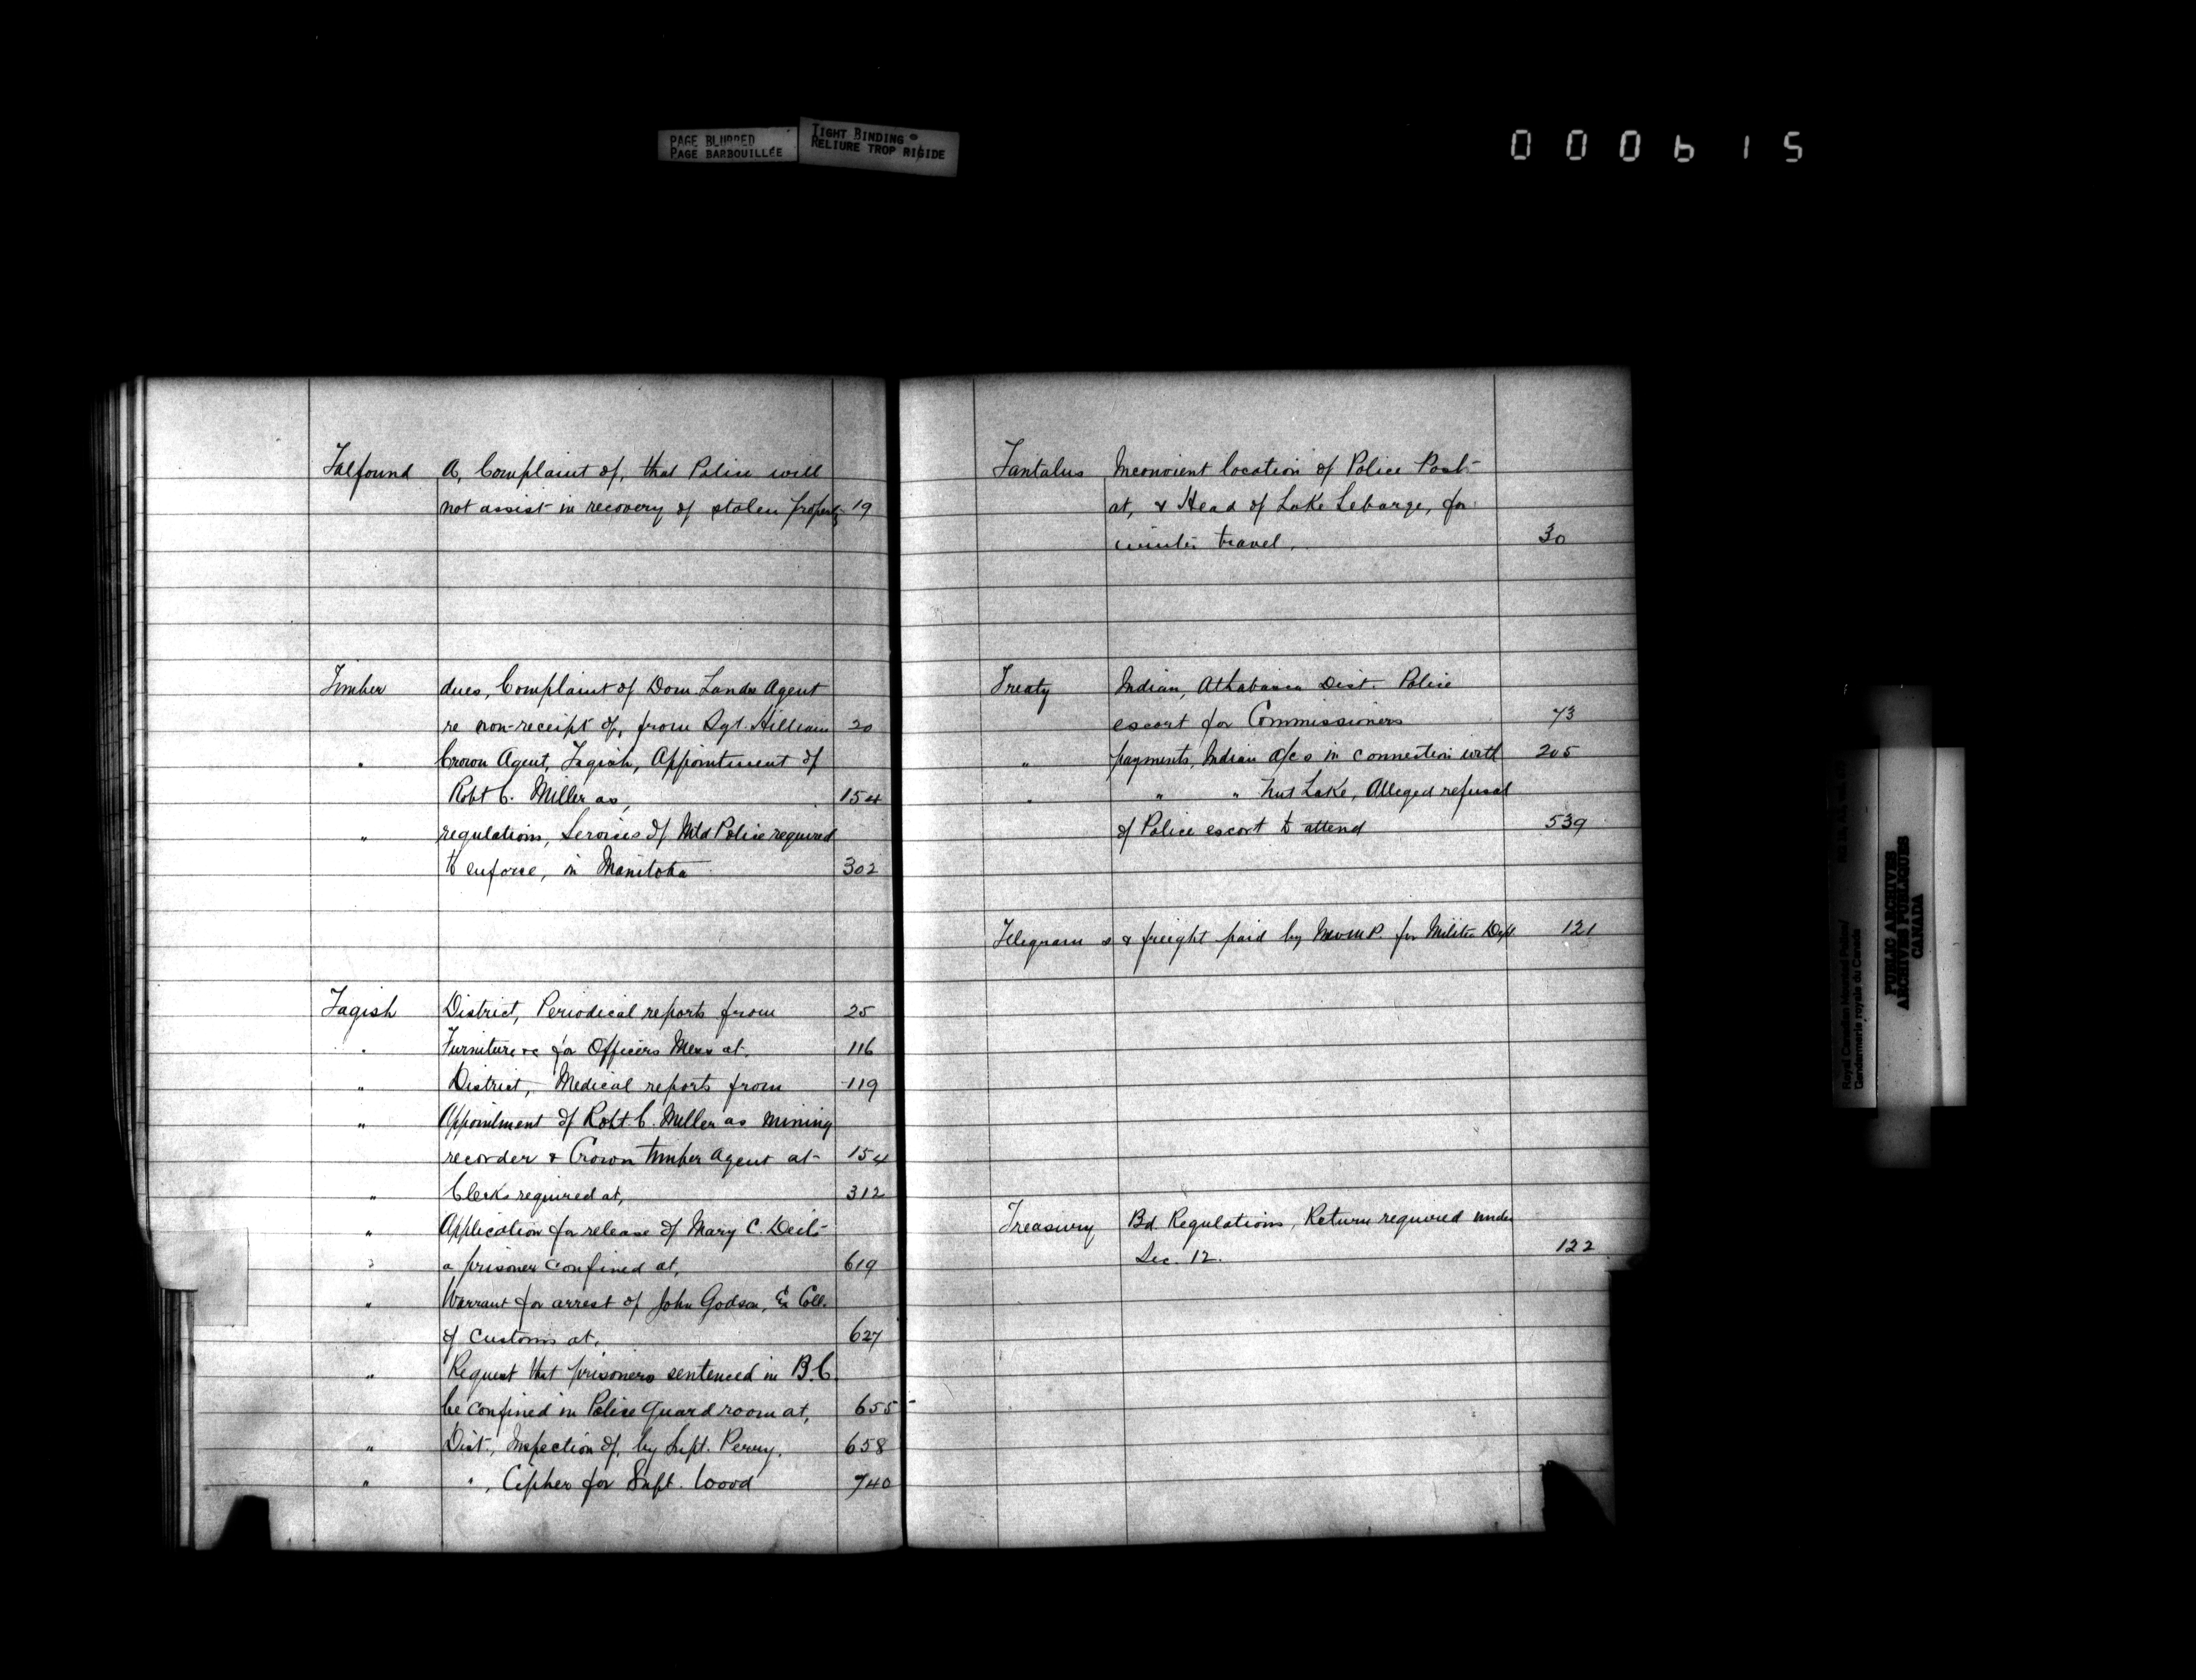 PAGE BLURRED
PAGE BARBOUILLÉE
TIGHT BINDING
RELIURE TROP RIGIDE
000615
Talfound A, Complaint of, that Police will
not assist in recovery of stolen property 19
Timber dues, Complaint of Dom. Lands Agent
re non-receipt of, from Sgt. Hilliam 20
" Crown Agent, Tagish, Appointment of
Robt C. Miller as, 154
" regulations, Services of Mtd Police required
to enforce, in Manitoba 302
Tagish District, Periodical reports from 25
" Furniture &c for Officers Mess at. 116
" District, Medical reports from 119
" Appointment of Robt. C. Miller as Mining
recorder & Crown timber agent at 154
" Clerks required at, 312
" Application for release of Mary C. Deit
" a prisoner confined at, 619
" Warrant for arrest of John Godson, Ex Coll.
of Customs at, 627
" Request that prisoners sentenced in B.C.
be confined in Police Guard room at, 655
" Dist., Inspection of, by Supt. Perry. 658
" " , Cipher for Supt. Wood 740
Tantalus Inconvient location of Police Post
at, & Head of Lake Lebarge, for
winter travel. 30
Treaty Indian, Athabasca Dist. Police
escort for Commissioners 73
" payments, Indian a/cs in connection with 205
" " " Nut Lake, Alleged refusal
of Police escort to attend 539
Telegrams & freight paid by NWMP. for Militia Dept 121
Treasury Bd. Regulations, Return required under
Sec. 12. 122
Royal Canadian Mounted Police/
Gendarmerie royale du Canada
PUBLIC ARCHIVES
ARCHIVES PUBLIQUES
CANADA